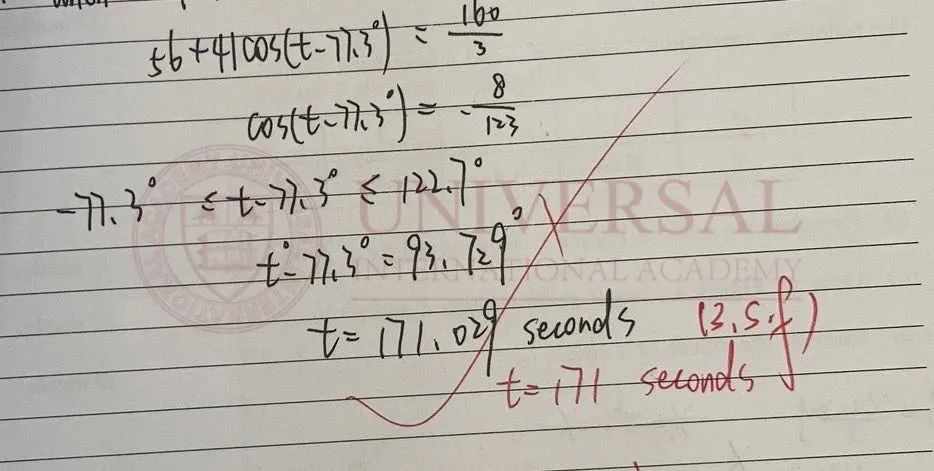 56+41cos(t-77.3°) = 160/3
cos(t-77.3°) = -8/123
-77.3° ≤ t-77.3° ≤ 122.7°
t°-77.3° = 93.729°
t = 171.029 seconds (3.s.f)
t=171 seconds
UNIVERSAL
INTERNATIONAL ACADEMY